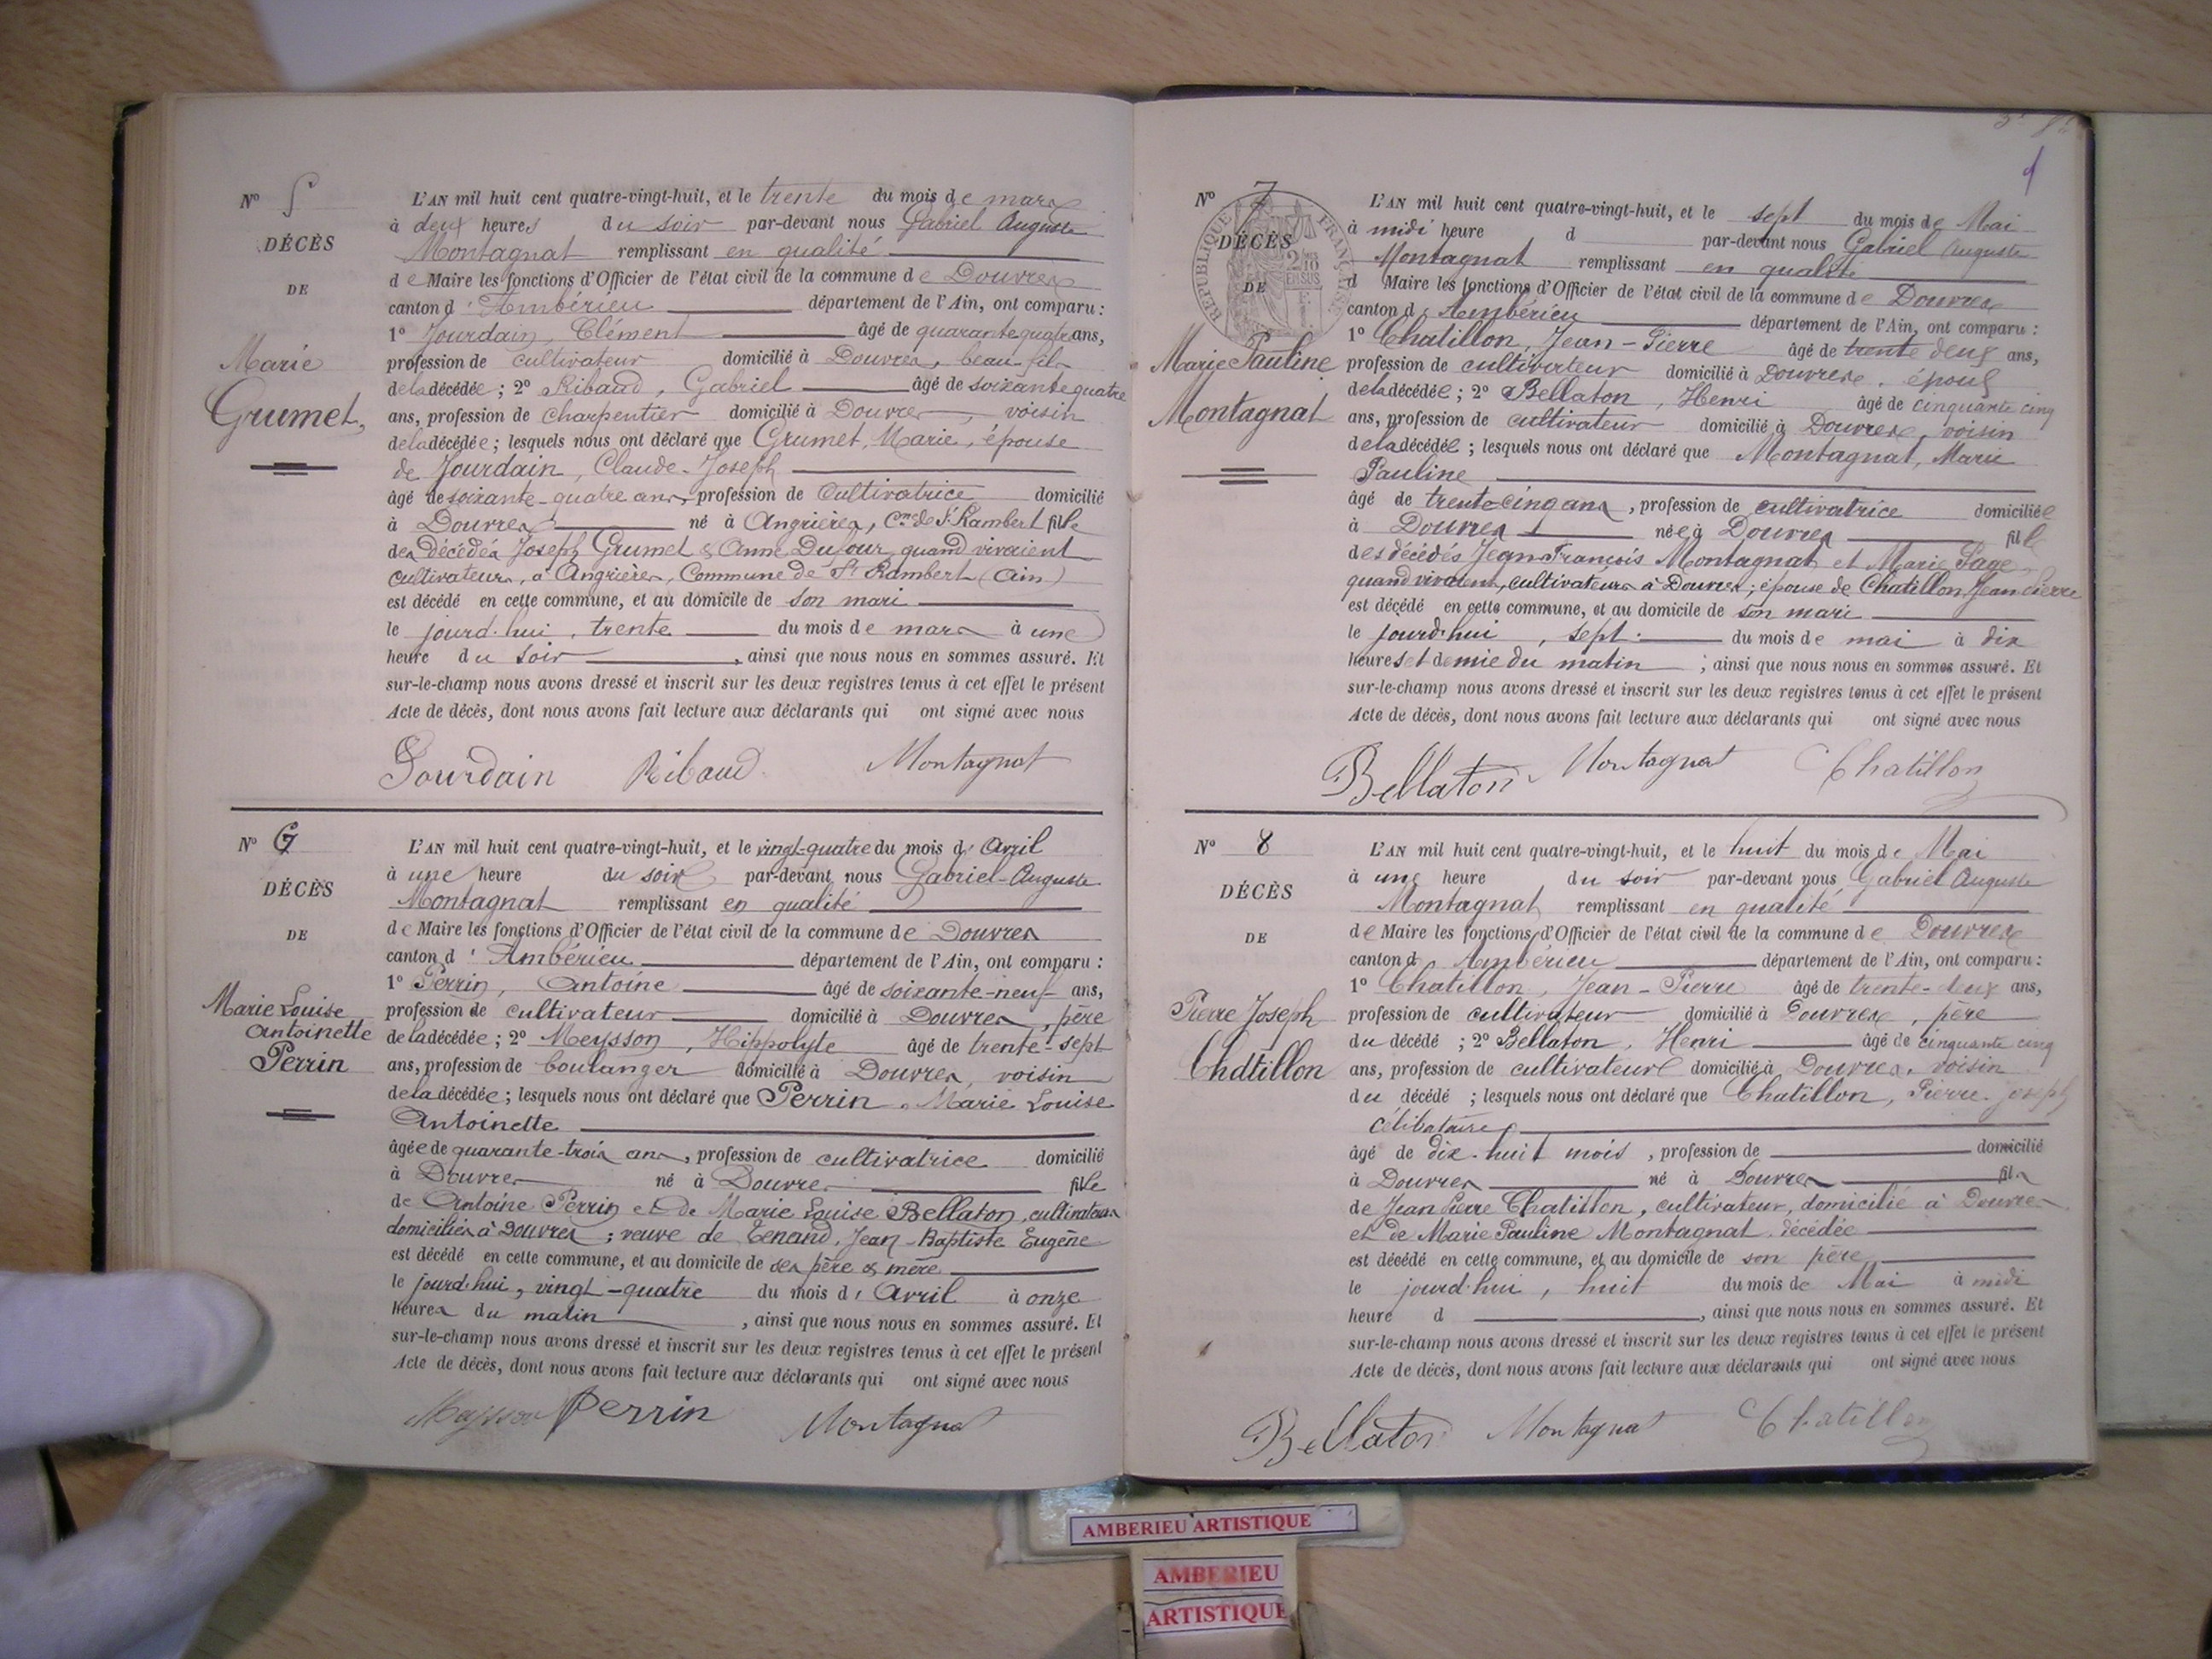 N° 5
DÉCÈS
DE
Marie
Grumet,
L'AN mil huit cent quatre-vingt-huit, et le trente du mois de mars
à deux heures du soir par-devant nous Gabriel Auguste
Montagnat remplissant en qualité
de Maire les fonctions d'Officier de l'état civil de la commune de Douvres
canton d'Ambérieu département de l'Ain, ont comparu :
1° Jourdain, Clément âgé de quarante quatre ans,
profession de cultivateur domicilié à Douvres, beau-fils
de la décédée ; 2° Ribaud, Gabriel âgé de soixante quatre
ans, profession de charpentier domicilié à Douvres, voisin
de la décédée ; lesquels nous ont déclaré que Grumet, Marie, épouse
de Jourdain, Claude-Joseph
âgé de soixante-quatre ans, profession de Cultivatrice domicilié
à Douvres né à Angrières, Cne de St Rambert fille
des décédés Joseph Grumet & Anne Dufour, quand vivaient
cultivateurs, à Angrières, Commune de St Rambert (Ain)
est décédé en cette commune, et au domicile de son mari
le jourd'hui, trente du mois de mars à une
heure du soir, ainsi que nous nous en sommes assuré. Et
sur-le-champ nous avons dressé et inscrit sur les deux registres tenus à cet effet le présent
Acte de décès, dont nous avons fait lecture aux déclarants qui ont signé avec nous
Jourdain Ribaud Montagnat
N° 6
DÉCÈS
DE
Marie Louise
Antoinette
Perrin
L'AN mil huit cent quatre-vingt-huit, et le vingt-quatre du mois d'Avril
à une heure du soir par-devant nous Gabriel-Auguste
Montagnat remplissant en qualité
de Maire les fonctions d'Officier de l'état civil de la commune de Douvres
canton d'Ambérieu département de l'Ain, ont comparu :
1° Perrin, Antoine âgé de soixante-neuf ans,
profession de cultivateur domicilié à Douvres, père
de la décédée ; 2° Meysson, Hippolyte âgé de trente-sept
ans, profession de boulanger domicilié à Douvres, voisin
de la décédée ; lesquels nous ont déclaré que Perrin, Marie Louise
Antoinette
âgée de quarante-trois ans, profession de cultivatrice domicilié
à Douvres né à Douvres fille
de Antoine Perrin et de Marie Louise Bellaton, cultivateurs
domiciliés à Douvres ; veuve de Tenand, Jean-Baptiste Eugène
est décédé en cette commune, et au domicile de ses père & mère
le jourd'hui, vingt-quatre du mois d'Avril à onze
heures du matin, ainsi que nous nous en sommes assuré. Et
sur-le-champ nous avons dressé et inscrit sur les deux registres tenus à cet effet le présent
Acte de décès, dont nous avons fait lecture aux déclarants qui ont signé avec nous
Meysson Perrin Montagnat
N° 7
RÉPUBLIQUE FRANÇAISE
2 DES 10 EN SUS
DÉCÈS
DE
Marie Pauline
Montagnat
L'AN mil huit cent quatre-vingt-huit, et le sept du mois de Mai
à midi heure d par-devant nous Gabriel Auguste
Montagnat remplissant en qualité
d Maire les fonctions d'Officier de l'état civil de la commune de Douvres
canton d'Ambérieu département de l'Ain, ont comparu :
1° Chatillon, Jean-Pierre âgé de trente deux ans,
profession de cultivateur domicilié à Douvres, époux
de la décédée ; 2° Bellaton, Henri âgé de cinquante cinq
ans, profession de cultivateur domicilié à Douvres, voisin
de la décédée ; lesquels nous ont déclaré que Montagnat, Marie
Pauline
âgé de trente-cinq ans, profession de cultivatrice domiciliée
à Douvres née à Douvres fille
des décédés Jean-François Montagnat et Marie Sage
quand vivaient, cultivateurs à Douvres ; épouse de Chatillon, Jean Pierre
est décédé en cette commune, et au domicile de son mari
le jourd'hui, sept du mois de mai à dix
heures et demie du matin ; ainsi que nous nous en sommes assuré. Et
sur-le-champ nous avons dressé et inscrit sur les deux registres tenus à cet effet le présent
Acte de décès, dont nous avons fait lecture aux déclarants qui ont signé avec nous
Bellaton Montagnat Chatillon
N° 8
DÉCÈS
DE
Pierre Joseph
Chatillon
L'AN mil huit cent quatre-vingt-huit, et le huit du mois de Mai
à une heure du soir par-devant nous Gabriel Auguste
Montagnat remplissant en qualité
de Maire les fonctions d'Officier de l'état civil de la commune de Douvres
canton d'Ambérieu département de l'Ain, ont comparu :
1° Chatillon, Jean-Pierre âgé de trente-deux ans,
profession de cultivateur domicilié à Douvres, père
du décédé ; 2° Bellaton, Henri âgé de cinquante cinq
ans, profession de cultivateur domicilié à Douvres, voisin
du décédé ; lesquels nous ont déclaré que Chatillon, Pierre-joseph
célibataire
âgé de dix-huit mois, profession de domicilié
à Douvres né à Douvres fils
de Jean Pierre Chatillon, cultivateur, domicilié à Douvres
et de Marie Pauline Montagnat, décédée
est décédé en cette commune, et au domicile de son père
le jourd'hui, huit du mois de Mai à midi
heure d, ainsi que nous nous en sommes assuré. Et
sur-le-champ nous avons dressé et inscrit sur les deux registres tenus à cet effet le présent
Acte de décès, dont nous avons fait lecture aux déclarants qui ont signé avec nous
Bellaton Montagnat Chatillon
AMBERIEU ARTISTIQUE
AMBERIEU
ARTISTIQUE